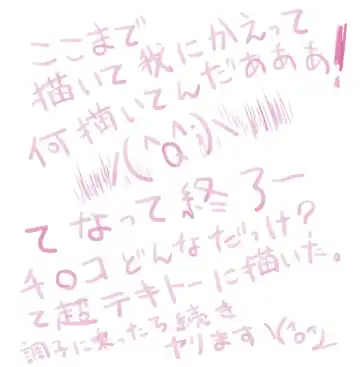 ここまで
描いて我にかえって
何描いてんだぁぁぁ!
\\\\\\/(^Q^;)\\\\\\\
てなって終ろー
チ〇コどんなだっけ?
て超テキトーに描いた。
調子に乗ったら続き
ヤリます\(^o^)/